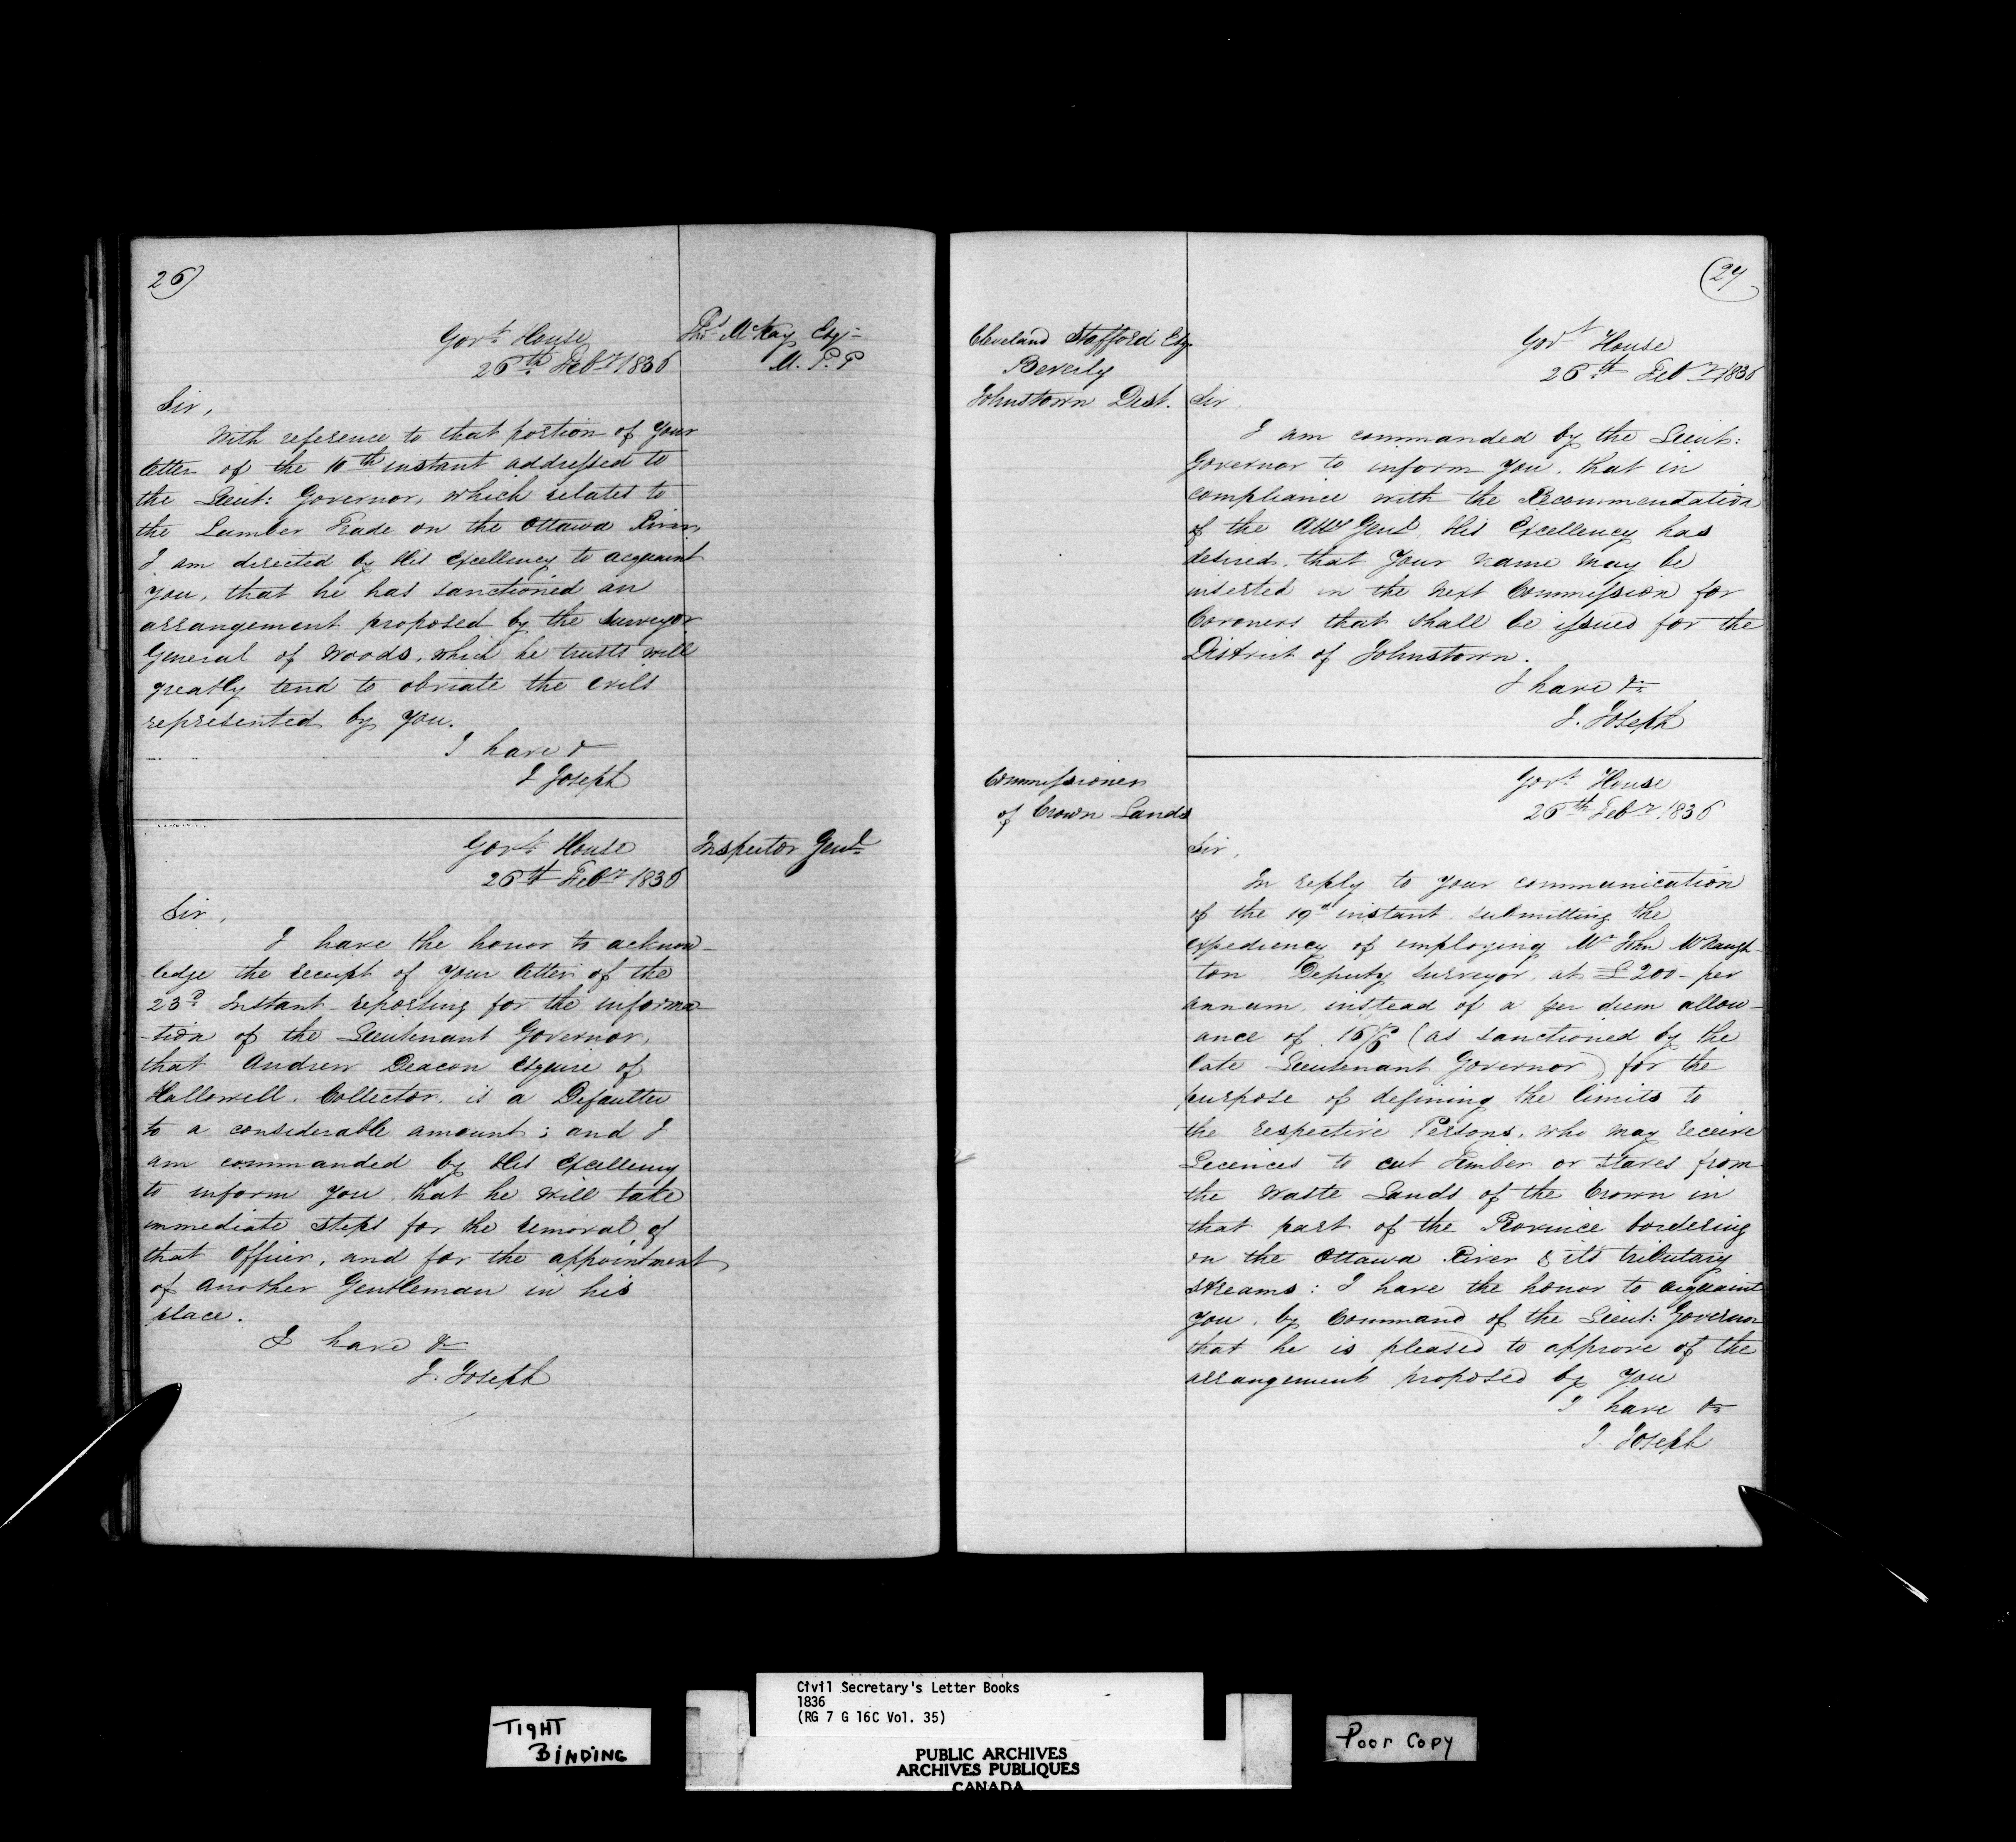 26)
Govt. House
26th. Feby. 1836
Thos. McKay Esqr.
M. P. P
Sir,
With reference to that portion of your
letter of the 10th instant addressed to
the Lieut: Governor, which relates to
the Lumber Trade on the Ottawa River,
I am directed by His Excellency to acquaint
you, that he has sanctioned an
arrangement proposed by the Surveyor
General of Woods, which he trusts will
greatly tend to obviate the evils
represented by you.
I have &
J Joseph
Govt. House
26th Feby. 1836
Inspector Genl.
Sir,
I have the honor to acknow-
-ledge the receipt of your letter of the
23d. Instant reporting for the informa-
-tion of the Lieutenant Governor,
that Andrew Deacon Esquire of
Hallowell, Collector, is a Defaulter
to a considerable amount; and I
am commanded by His Excellency
to inform you, that he will take
immediate steps for the removal of
that officer, and for the appointment
of another Gentleman in his
place.
I have &c
J. Joseph
(27
Cleveland Stafford Esq.
Beverly
Johnstown Dist.
Govt House
26th Feby. 1836
Sir,
I am commanded by the Lieut:
Governor to inform you, that in
compliance with the Recommendation
of the Atty Genl. His Excellency has
desired, that your name may be
inserted in the next Commission for
Coroners that shall be issued for the
District of Johnstown.
I have &c
J. Joseph
Commissioner
of Crown Lands
Govt. House
26th Feby. 1836
Sir,
In reply to your communication
of the 19th instant submitting the
expediency of employing Mr John McNaugh-
ton Deputy Surveyor, at £200- per
annum, instead of a per diem allow-
ance of 16/6 (as sanctioned by the
late Lieutenant Governor) for the
purpose of defining the limits to
the respective Persons, who may receive
Licences to cut Timber or Staves from
the Waste Lands of the Crown in
that part of the Province bordering
on the Ottawa River & its tributary
streams: I have the honor to acquaint
you, by Command of the Lieut: Governor
that he is pleased to approve of the
arrangement proposed by you
I have &c
J. Joseph
TIGHT
BINDING
Civil Secretary's Letter Books
1836
(RG 7 G 16C Vol. 35)
PUBLIC ARCHIVES
ARCHIVES PUBLIQUES
CANADA
Poor Copy